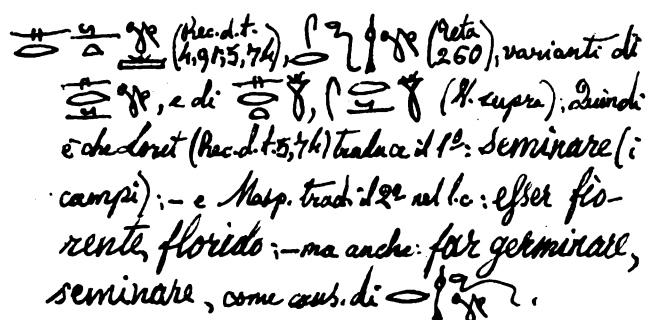 (Rec. d. t. 4,91; 5,74), (Zeta 260), varianti di
, e di , (V. supra); Quindi
è che Loret (Rec. d. t. 5,74) traduce il 1º: seminare (i
campi); – e Masp. trad. il 2º nel l. c.: esser fio-
rente, florido; – ma anche: far germinare,
seminare, come caus. di .